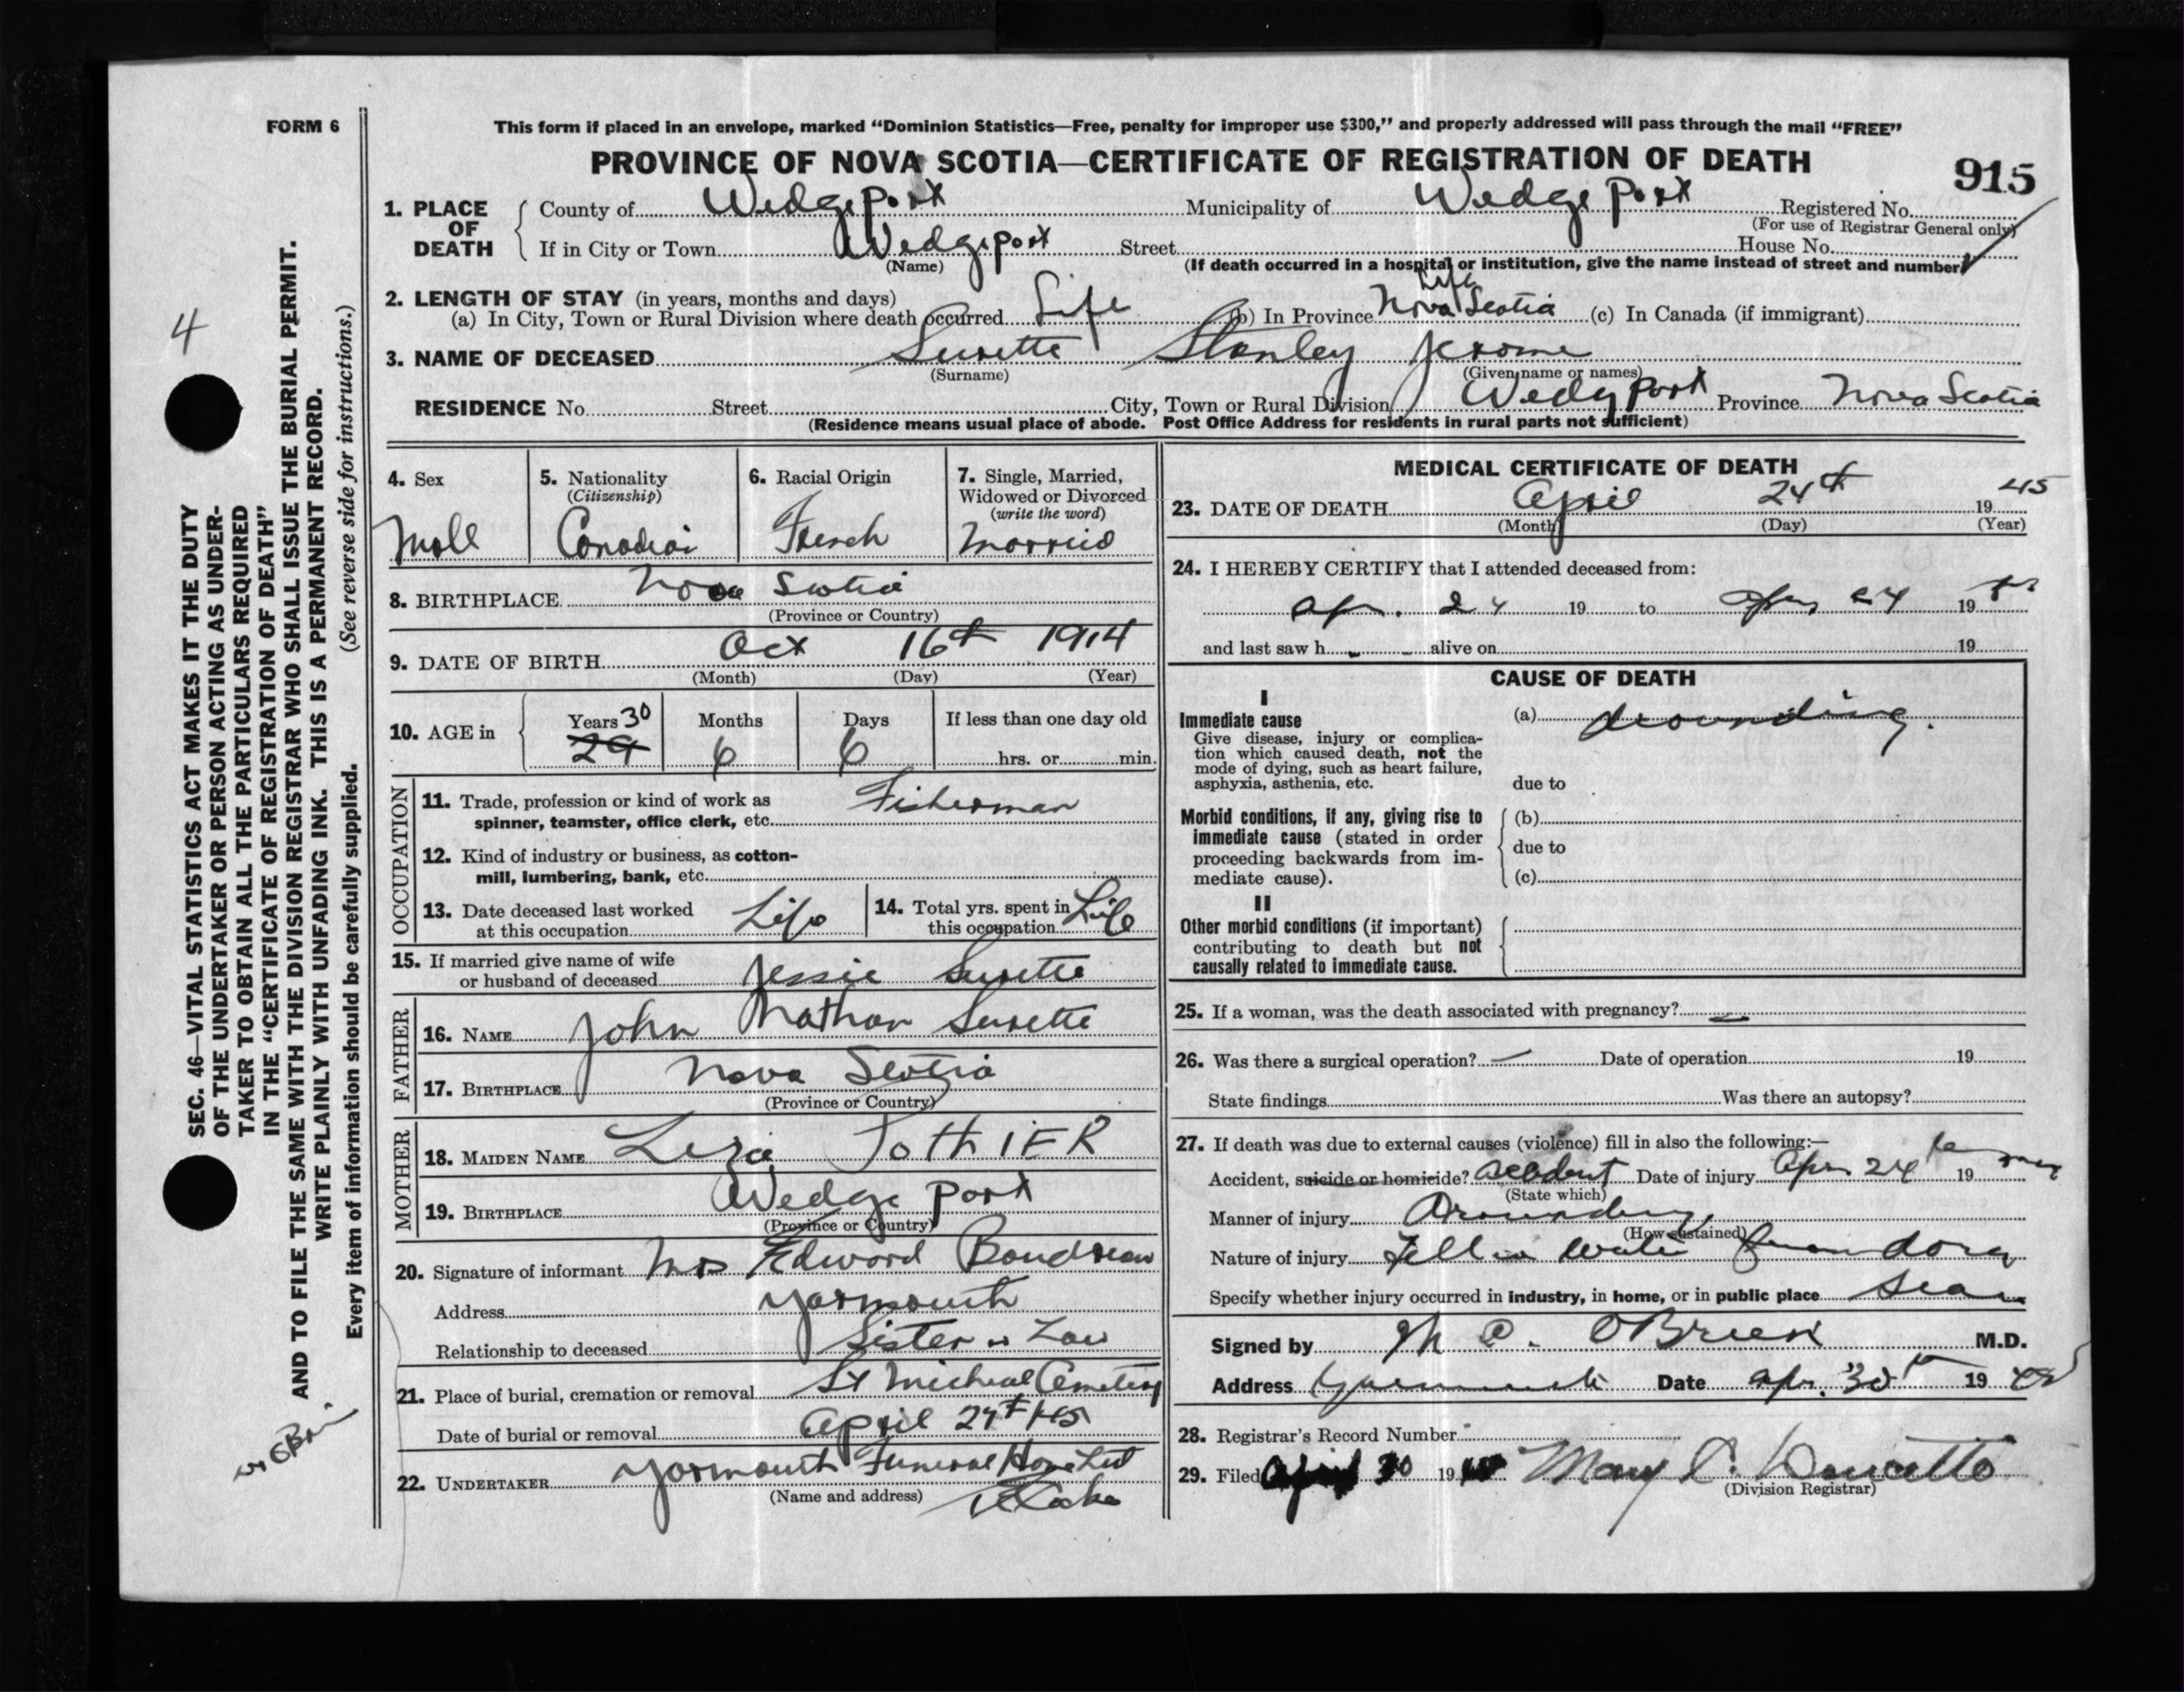 FORM 6
This form if placed in an envelope, marked “Dominion Statistics—Free, penalty for improper use $300,” and properly addressed will pass through the mail “FREE”
PROVINCE OF NOVA SCOTIA—CERTIFICATE OF REGISTRATION OF DEATH
915
1. PLACE OF DEATH
County of Wedgeport Municipality of Wedgeport Registered No.
(For use of Registrar General only)
If in City or Town Wedgeport Street House No.
(Name) (If death occurred in a hospital or institution, give the name instead of street and number)
2. LENGTH OF STAY (in years, months and days)
Life
(a) In City, Town or Rural Division where death occurred Life (b) In Province Nova Scotia (c) In Canada (if immigrant)
3. NAME OF DECEASED Surette Stanley Jerome
(Surname) (Given name or names)
RESIDENCE No. Street City, Town or Rural Division Wedgport Province Nova Scotia
(Residence means usual place of abode. Post Office Address for residents in rural parts not sufficient)
4. Sex
Male
5. Nationality
(Citizenship)
Canadian
6. Racial Origin
French
7. Single, Married,
Widowed or Divorced
(write the word)
Married
8. BIRTHPLACE Nova Scotia
(Province or Country)
9. DATE OF BIRTH Oct 16th 1914
(Month) (Day) (Year)
10. AGE in
Years 30
29
Months
6
Days
6
If less than one day old
hrs. or min.
OCCUPATION
11. Trade, profession or kind of work as
spinner, teamster, office clerk, etc. Fisherman
12. Kind of industry or business, as cotton-
mill, lumbering, bank, etc.
13. Date deceased last worked
at this occupation Life
14. Total yrs. spent in
this occupation Life
15. If married give name of wife
or husband of deceased Jessie Surette
FATHER
16. NAME John Nathan Surette
17. BIRTHPLACE Nova Scotia
(Province or Country)
MOTHER
18. MAIDEN NAME Liza PothiER
19. BIRTHPLACE Wedge port
(Province or Country)
20. Signature of informant Mrs Edward Boudreau
Address Yarmouth
Relationship to deceased Sister in Law
21. Place of burial, cremation or removal St Micheal Cemetery
Date of burial or removal April 27th 1945
22. UNDERTAKER Yarmouth Funeral Home Ltd
(Name and address)
MEDICAL CERTIFICATE OF DEATH
23. DATE OF DEATH April 24th 1945
(Month) (Day) (Year)
24. I HEREBY CERTIFY that I attended deceased from:
Apr. 24 19 to Apr 24 19 45
and last saw h alive on 19
CAUSE OF DEATH
I
Immediate cause
Give disease, injury or complica-
tion which caused death, not the
mode of dying, such as heart failure,
asphyxia, asthenia, etc.
(a) drounding.
due to
Morbid conditions, if any, giving rise to
immediate cause (stated in order
proceeding backwards from im-
mediate cause).
(b)
due to
(c)
II
Other morbid conditions (if important)
contributing to death but not
causally related to immediate cause.
25. If a woman, was the death associated with pregnancy? —
26. Was there a surgical operation? — Date of operation 19
State findings Was there an autopsy?
27. If death was due to external causes (violence) fill in also the following:—
Accident, suicide or homicide? accident Date of injury Apr 24th 19
(State which)
Manner of injury Drounding
(How sustained)
Nature of injury Fell in water from dory
Specify whether injury occurred in industry, in home, or in public place Sea
Signed by M C. OBrien M.D.
Address Yarmouth Date Apr. 30th 1945
28. Registrar's Record Number
29. Filed April 30 1945 Mary
(Division Registrar)
4
SEC. 46—VITAL STATISTICS ACT MAKES IT THE DUTY
OF THE UNDERTAKER OR PERSON ACTING AS UNDER-
TAKER TO OBTAIN ALL THE PARTICULARS REQUIRED
IN THE “CERTIFICATE OF REGISTRATION OF DEATH”
AND TO FILE THE SAME WITH THE DIVISION REGISTRAR WHO SHALL ISSUE THE BURIAL PERMIT.
WRITE PLAINLY WITH UNFADING INK. THIS IS A PERMANENT RECORD.
Every item of information should be carefully supplied. (See reverse side for instructions.)